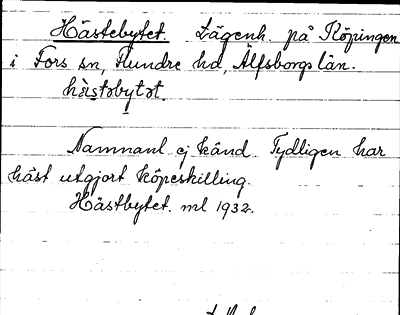 Hästebytet. Lägenh. på Köpingen
i Fors sn, Flundre hd, Älfsborgs län.
hàstəbytət.
Namnanl. ej känd. Tydligen har
häst utgjort köpeskilling.
Hästbytet. ml 1932.